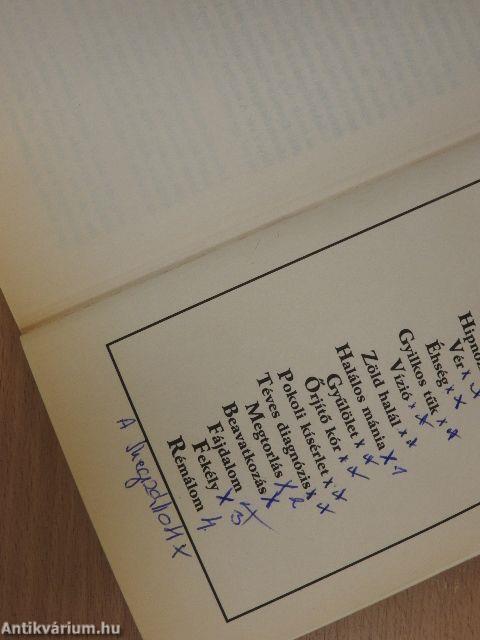 Hipnó
Vér x x
Éhség x x
Gyilkos tűk x x
Vízió x x
Zöld halál x x
Halálos mánia X 1
Gyűlölet x x
Őrjítő kór x x
Pokoli kísérlet x x
Téves diagnózis x x
Megtorlás X 2
Beavatkozás X
Fájdalom X
Fekély X 3
Rémálom 4.
A
Antikvárium.hu